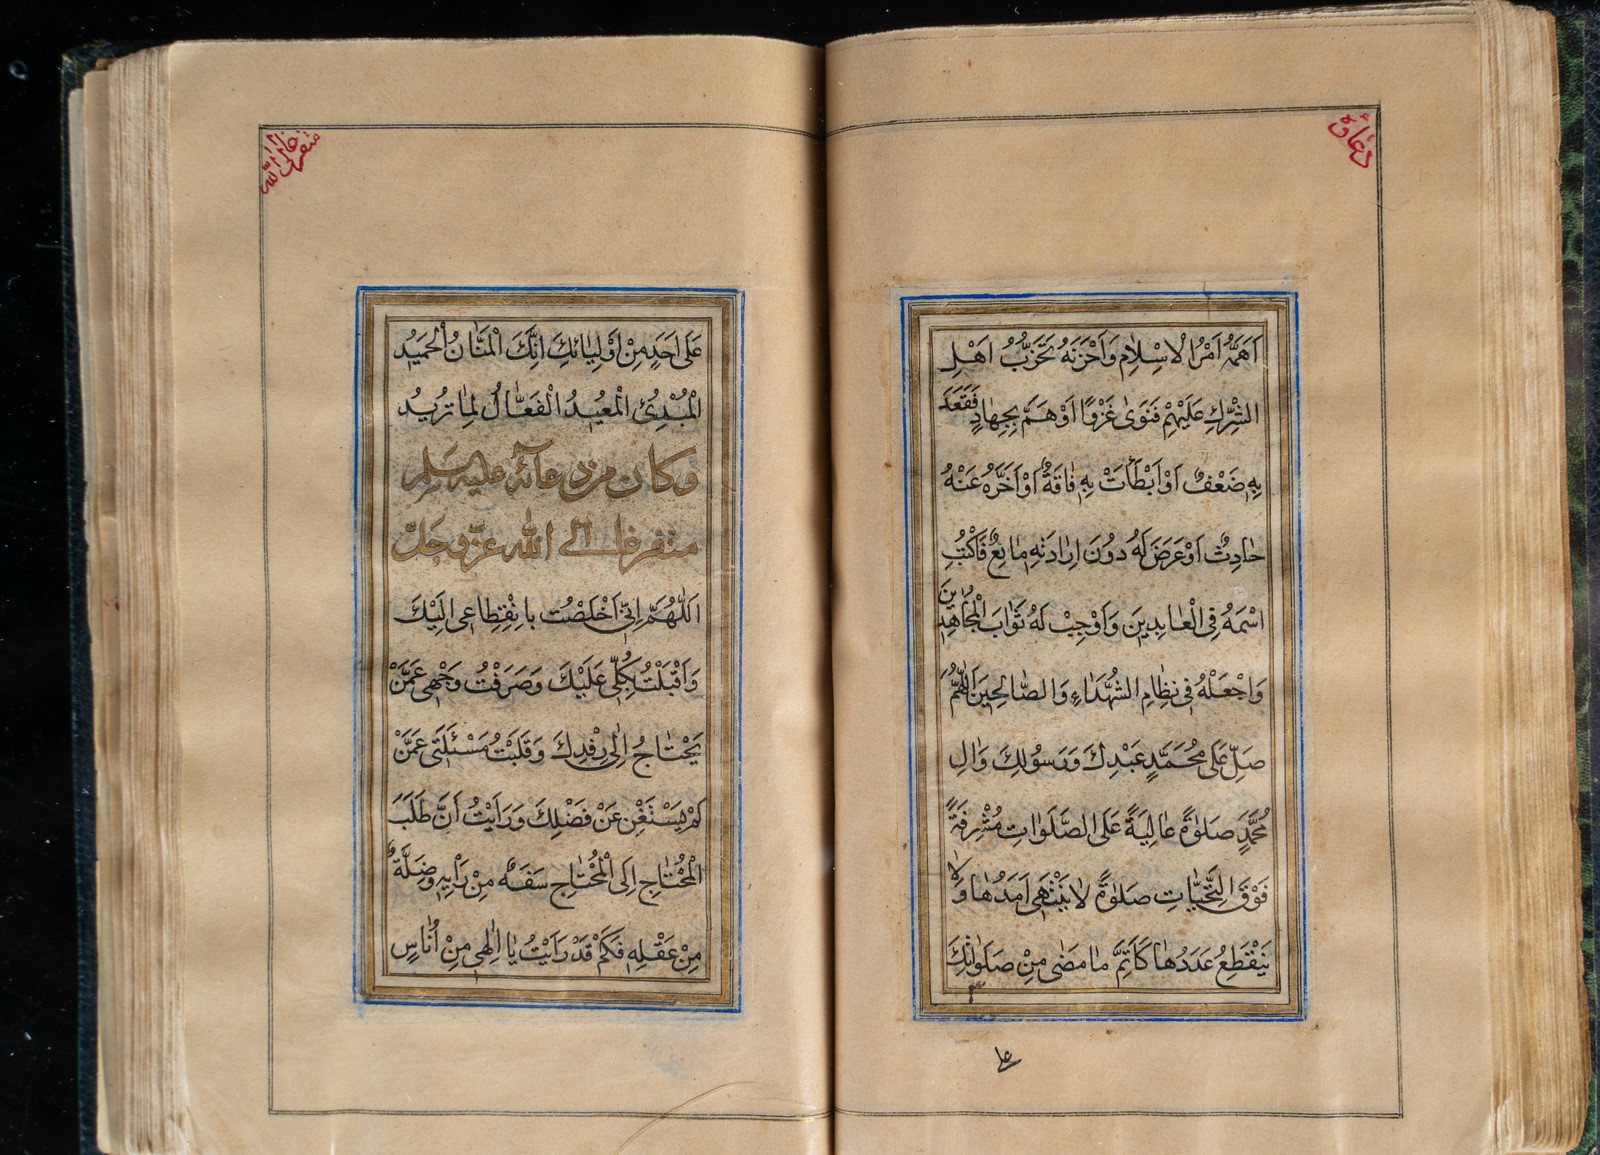 دعاؤه
اَهَمَّهُ اَمْرُ الْاِسْلامِ وَاَحْزَنَهُ تَحَزُّبُ اَهْلِ
الشِّرْكِ عَلَيْهِمْ فَنَوىٰ غَزْوًا اَوْ هَمَّ بِجِهادٍ فَقَعَدَ
بِهِ ضَعْفٌ اَوْ اَبْطَأَتْ بِهِ فاقَةٌ اَوْ اَخَّرَهُ عَنْهُ
حادِثٌ اَوْ عَرَضَ لَهُ دُونَ اِرادَتِهِ مانِعٌ فَاكْتُبِ
اسْمَهُ فِى الْعابِدِينَ وَاَوْجِبْ لَهُ ثَوابَ الْمُجاهِدِينَ
وَاجْعَلْهُ فِى نِظامِ الشُّهَداءِ وَالصّالِحِينَ اَللّٰهُمَّ
صَلِّ عَلىٰ مُحَمَّدٍ عَبْدِكَ وَرَسُولِكَ وَالِ
مُحَمَّدٍ صَلوٰةً عالِيَةً عَلَى الصَّلَواتِ مُشْرِفَةً
فَوْقَ التَّحِيّاتِ صَلوٰةً لا يَنْتَهِى اَمَدُها وَلا
يَنْقَطِعُ عَدَدُها كَاَتَمِّ ما مَضىٰ مِنْ صَلَواتِكَ
متفزعا الى الله
عَلىٰ اَحَدٍ مِنْ اَوْلِيائِكَ اِنَّكَ الْمَنّانُ الْحَمِيدُ
الْمُبْدِئُ الْمُعِيدُ الْفَعّالُ لِما تُرِيدُ
وكان من دعائه عليه سلم
متفزعا الى الله عزّ وجلّ
اَللّٰهُمَّ اِنِّى اَخْلَصْتُ بِانْقِطاعِى اِلَيْكَ
وَاَقْبَلْتُ بِكُلِّى عَلَيْكَ وَصَرَفْتُ وَجْهِى عَمَّنْ
يَحْتاجُ اِلىٰ رِفْدِكَ وَقَلَبْتُ مَسْئَلَتِى عَمَّنْ
لَمْ يَسْتَغْنِ عَنْ فَضْلِكَ وَرَاَيْتُ اَنَّ طَلَبَ
الْمُحْتاجِ اِلَى الْمُحْتاجِ سَفَهٌ مِنْ رَاْيِهِ وَضَلَّةٌ
مِنْ عَقْلِهِ فَكَمْ قَدْ رَاَيْتُ يا اِلٰهِى مِنْ اُناسٍ